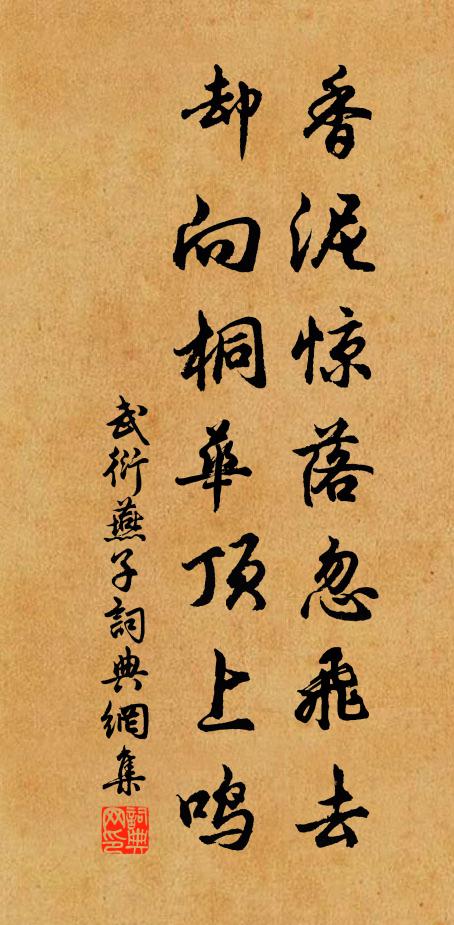 香泥惊落忽飛去
却向桐華顶上鸣
武衍燕子詞典網集
詞典网印